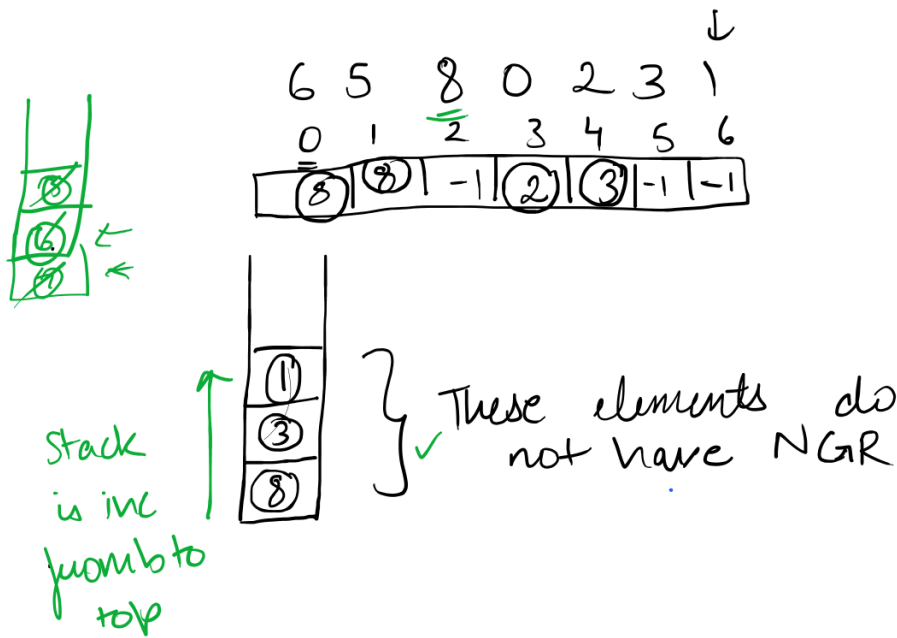 6 5 8 0 2 3 1
0 1 2 3 4 5 6
8 8 -1 2 3 -1 -1
1
3
8
These elements do
not have NGR
Stack
is inc
from b to
top